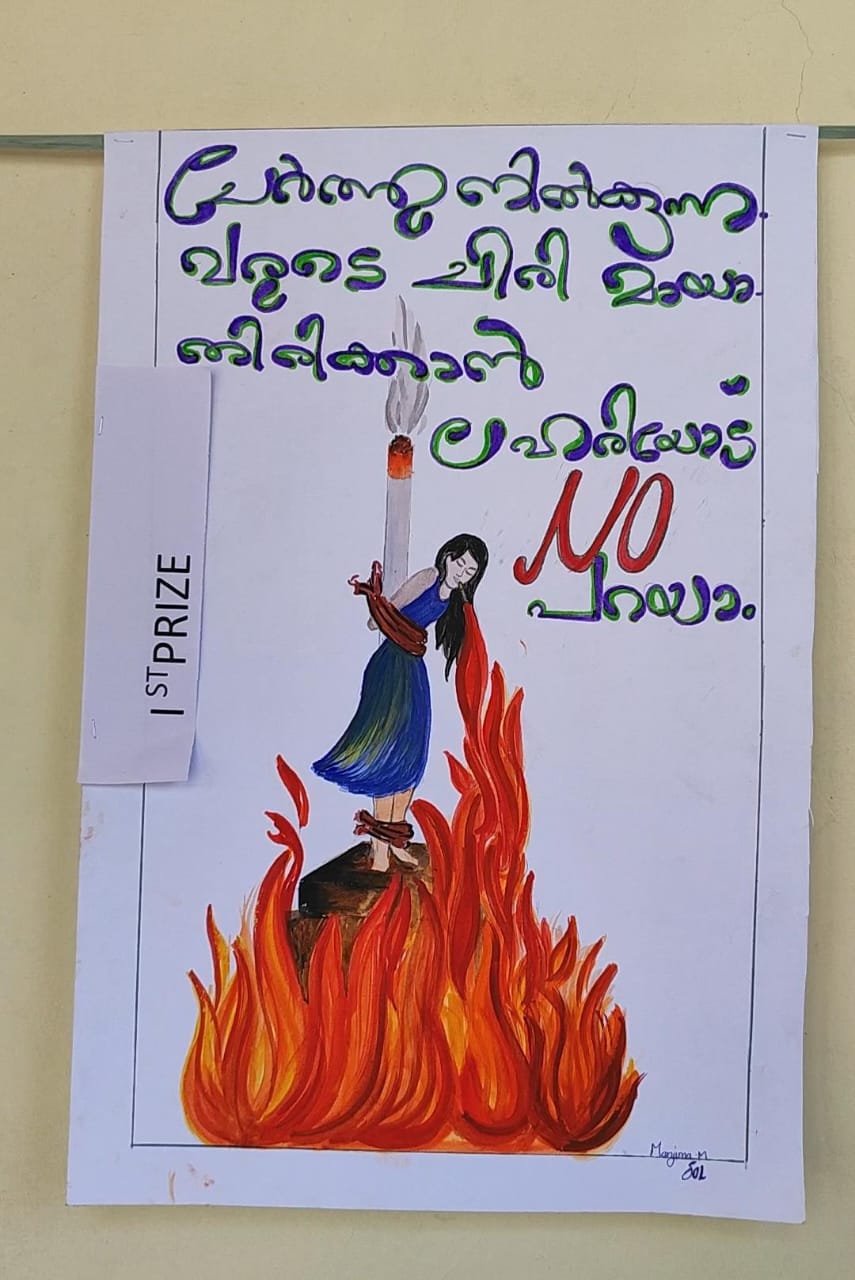 ചേർത്തു നിൽക്കുന്ന
വരുടെ ചിരി മായാ
തിരിക്കാൻ
ലഹരിയോട്
NO
പറയാം.
I ST PRIZE
Manjima M